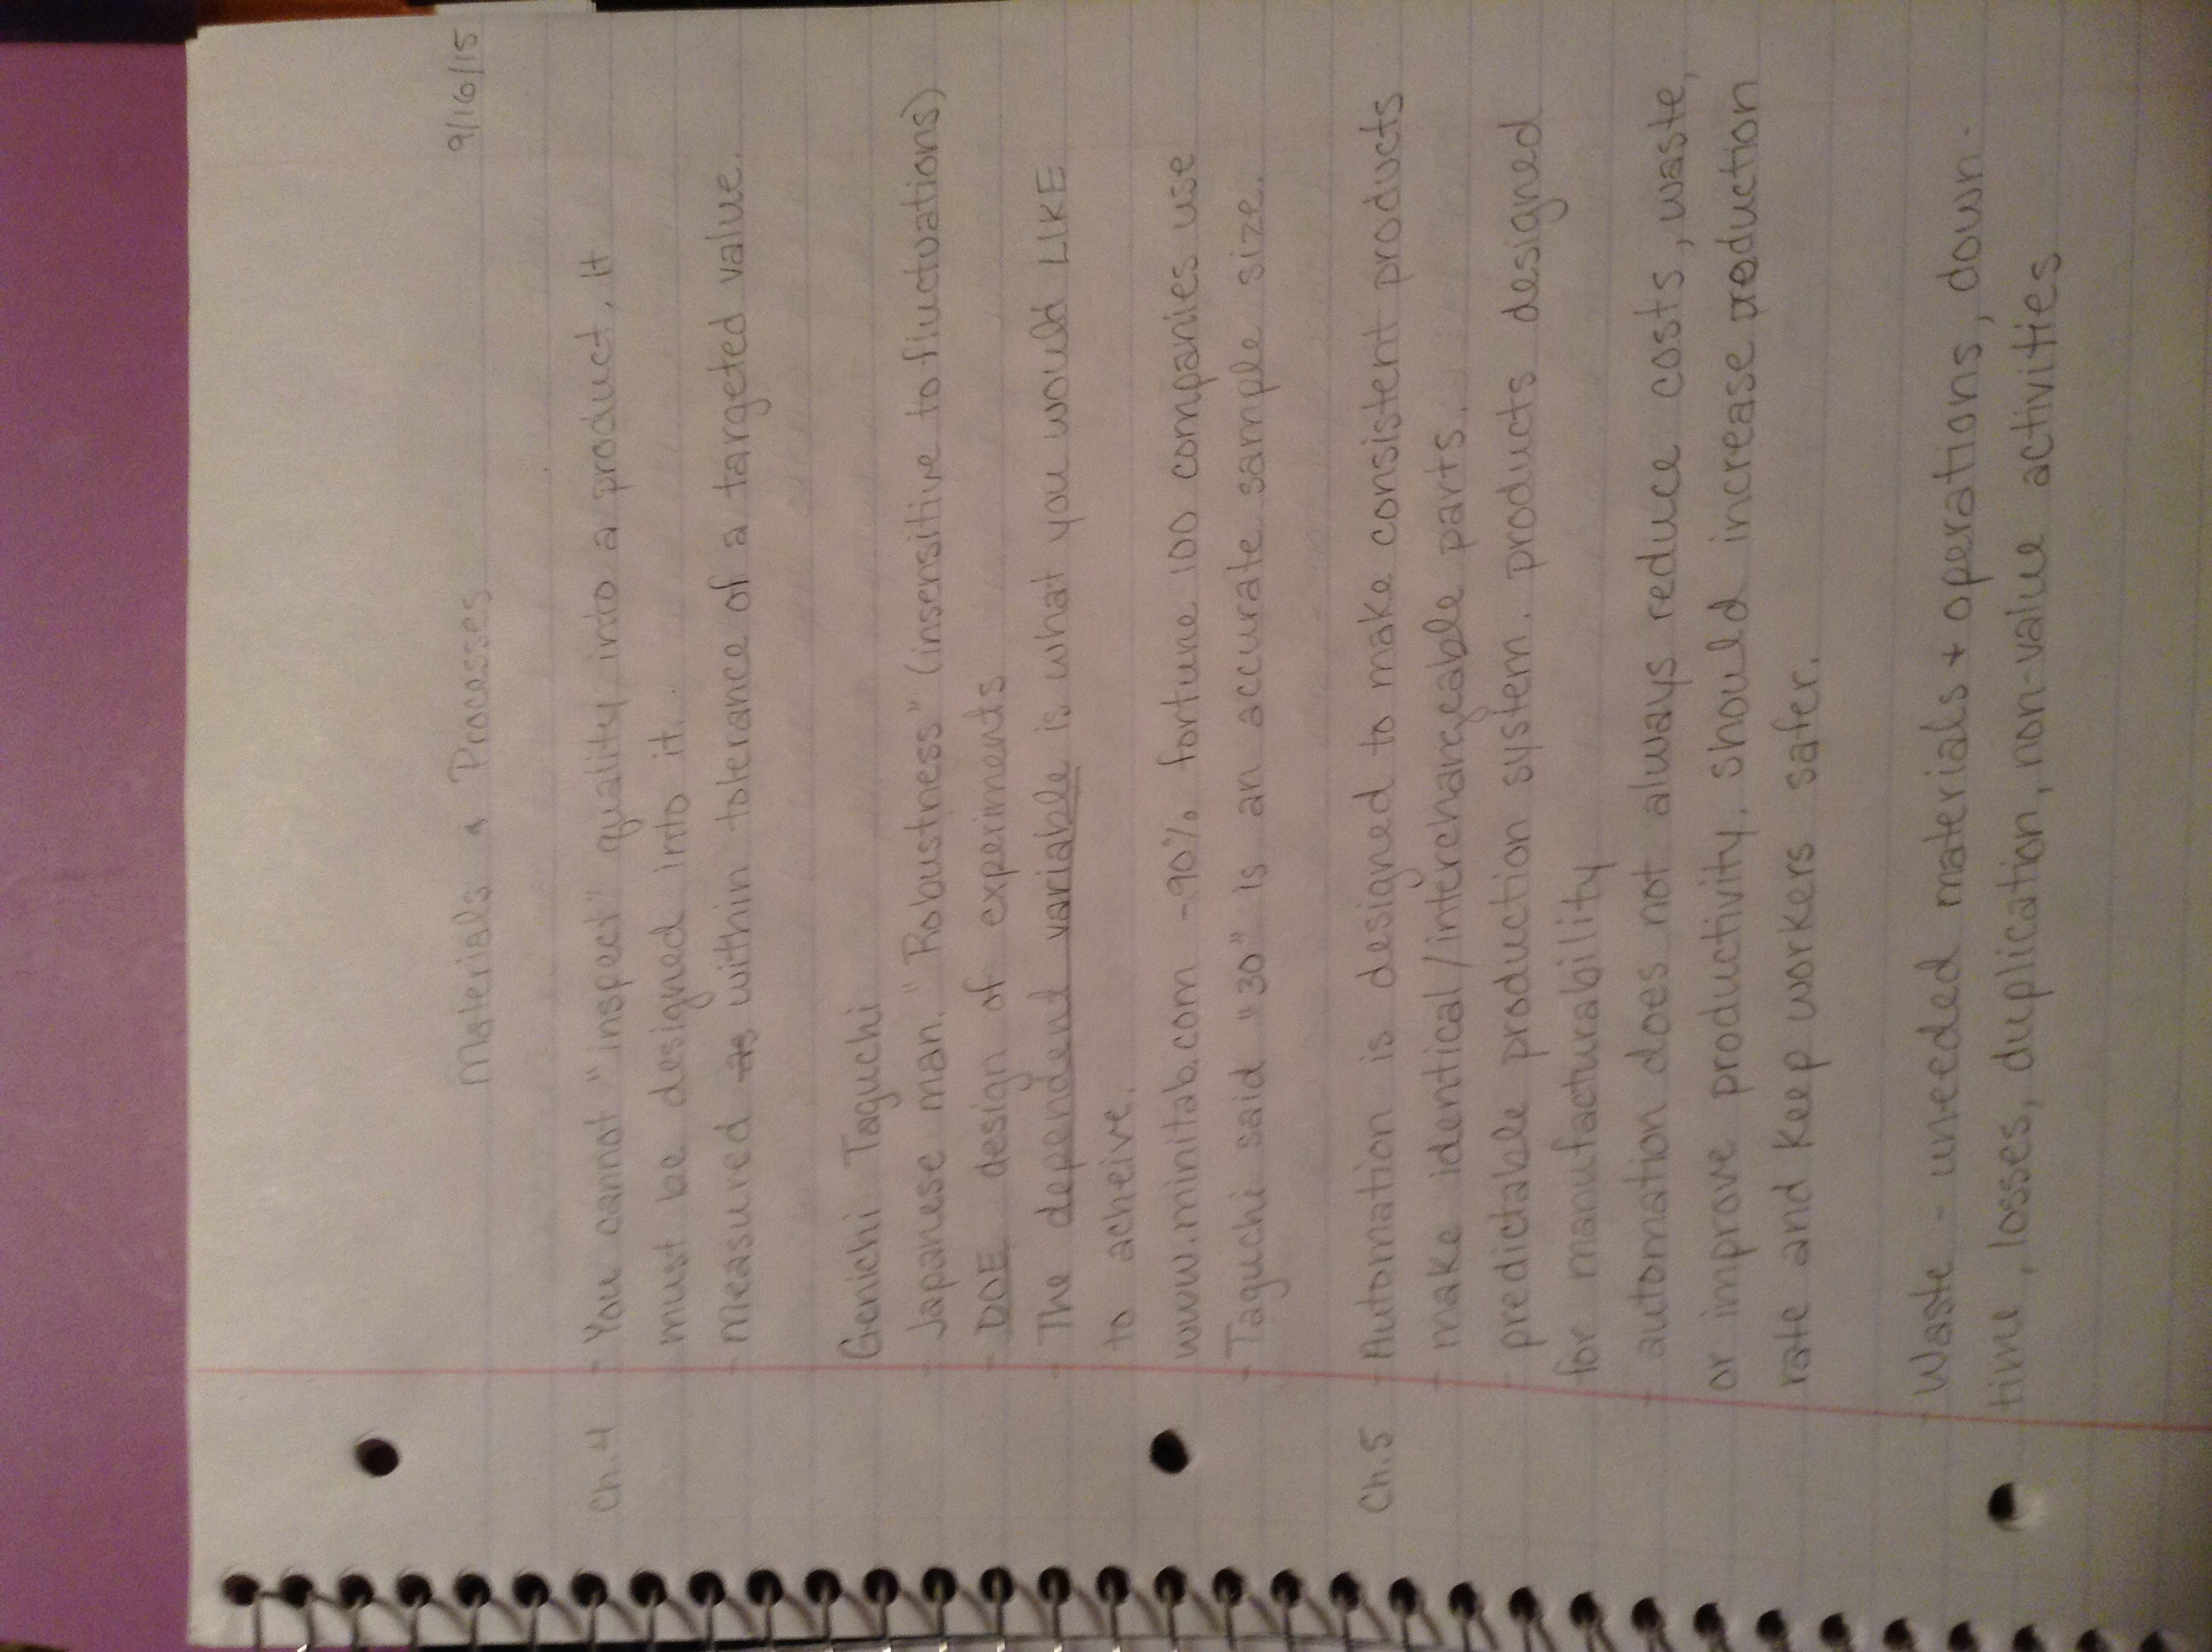 9/16/15
Materials & Processes
Ch.4 - You cannot "inspect" quality into a product, it
must be designed into it.
- measured as within tolerance of a targeted value.
Genichi Taguchi
- Japanese man. "Robustness" (insensitive to fluctuations)
- DOE design of experiments
- The dependent variable is what you would LIKE
to acheive.
www.minitab.com -90% fortune 100 companies use
- Taguchi said "30" is an accurate sample size.
Ch.5 - Automation is designed to make consistent products
- make identical/interchangeable parts.
- predictable production system. products designed
for manufacturability
- automation does not always reduce costs, waste,
or improve productivity. should increase production
rate and keep workers safer.
- Waste - uneeded materials + operations, down-
time, losses, duplication, non-value activities